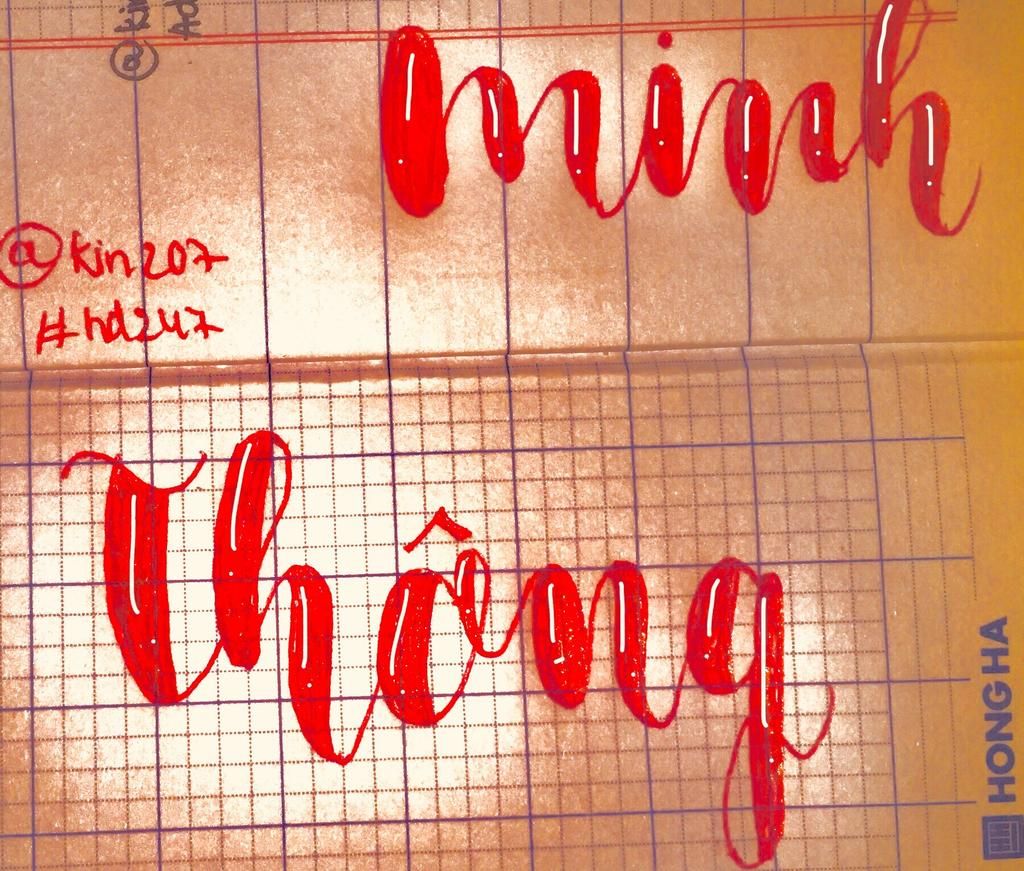 @kin
Ad
minh
@kin207
#hd247
Thông
HONG HA